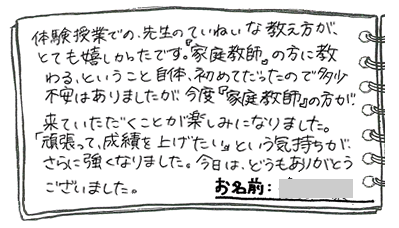 体験授業での、先生のていねいな教え方が、
とても嬉しかったです。『家庭教師』の方に教
わる、ということ自体、初めてだったので多少
不安はありましたが、今度『家庭教師』の方が
来ていただくことが楽しみになりました。
「頑張って、成績を上げたい」という気持ちが、
さらに強くなりました。今日は、どうもありがとう
ございました。
お名前: